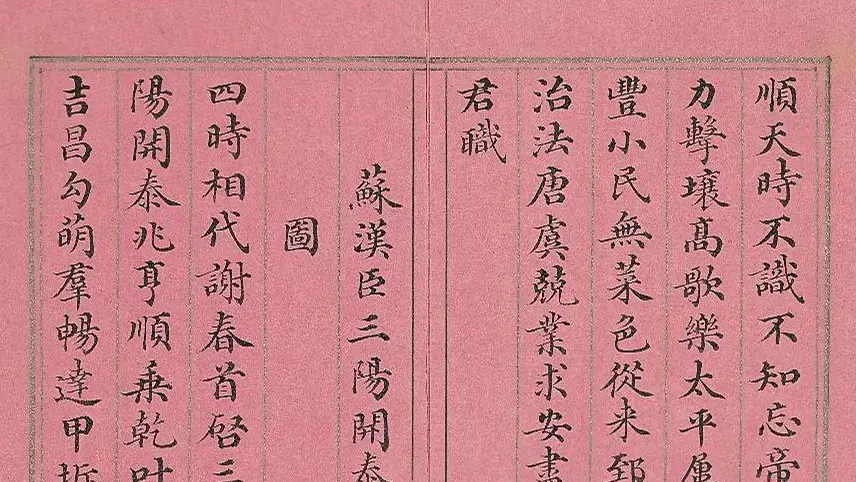 順天時不識不知忘帝
力擊壤高歌樂太平
豐小民無菜色從来郅
治法唐虞兢業求安
君職
蘇漢臣三陽開泰
圖
四時相代謝春首啓三
陽開泰兆亨順乗乾叶
吉昌勾萌羣暢達甲